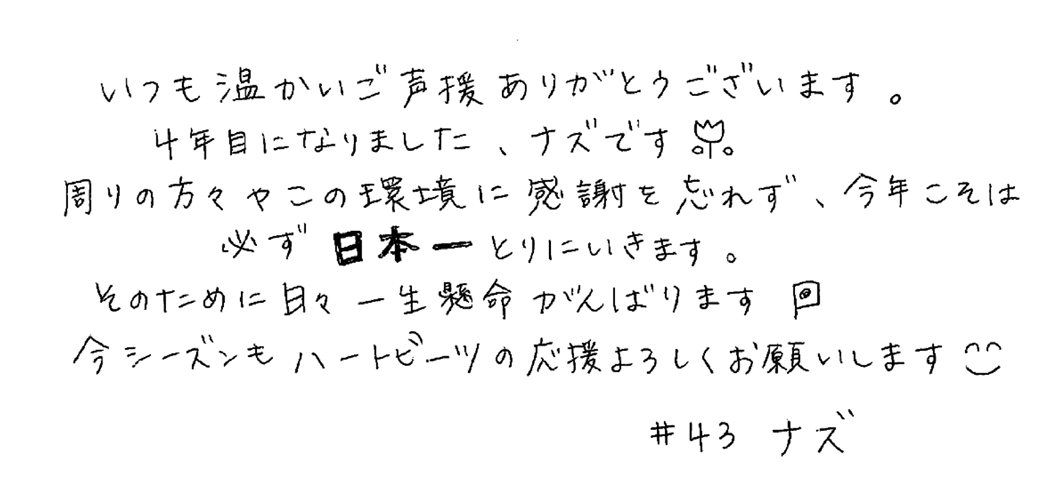 いつも温かいご声援ありがとうございます。
4年目になりました、ナズです
周りの方々やこの環境に感謝を忘れず、今年こそは
必ず日本一とりにいきます。
そのために日々一生懸命がんばります
今シーズンもハートビーツの応援よろしくお願いします
#43 ナズ